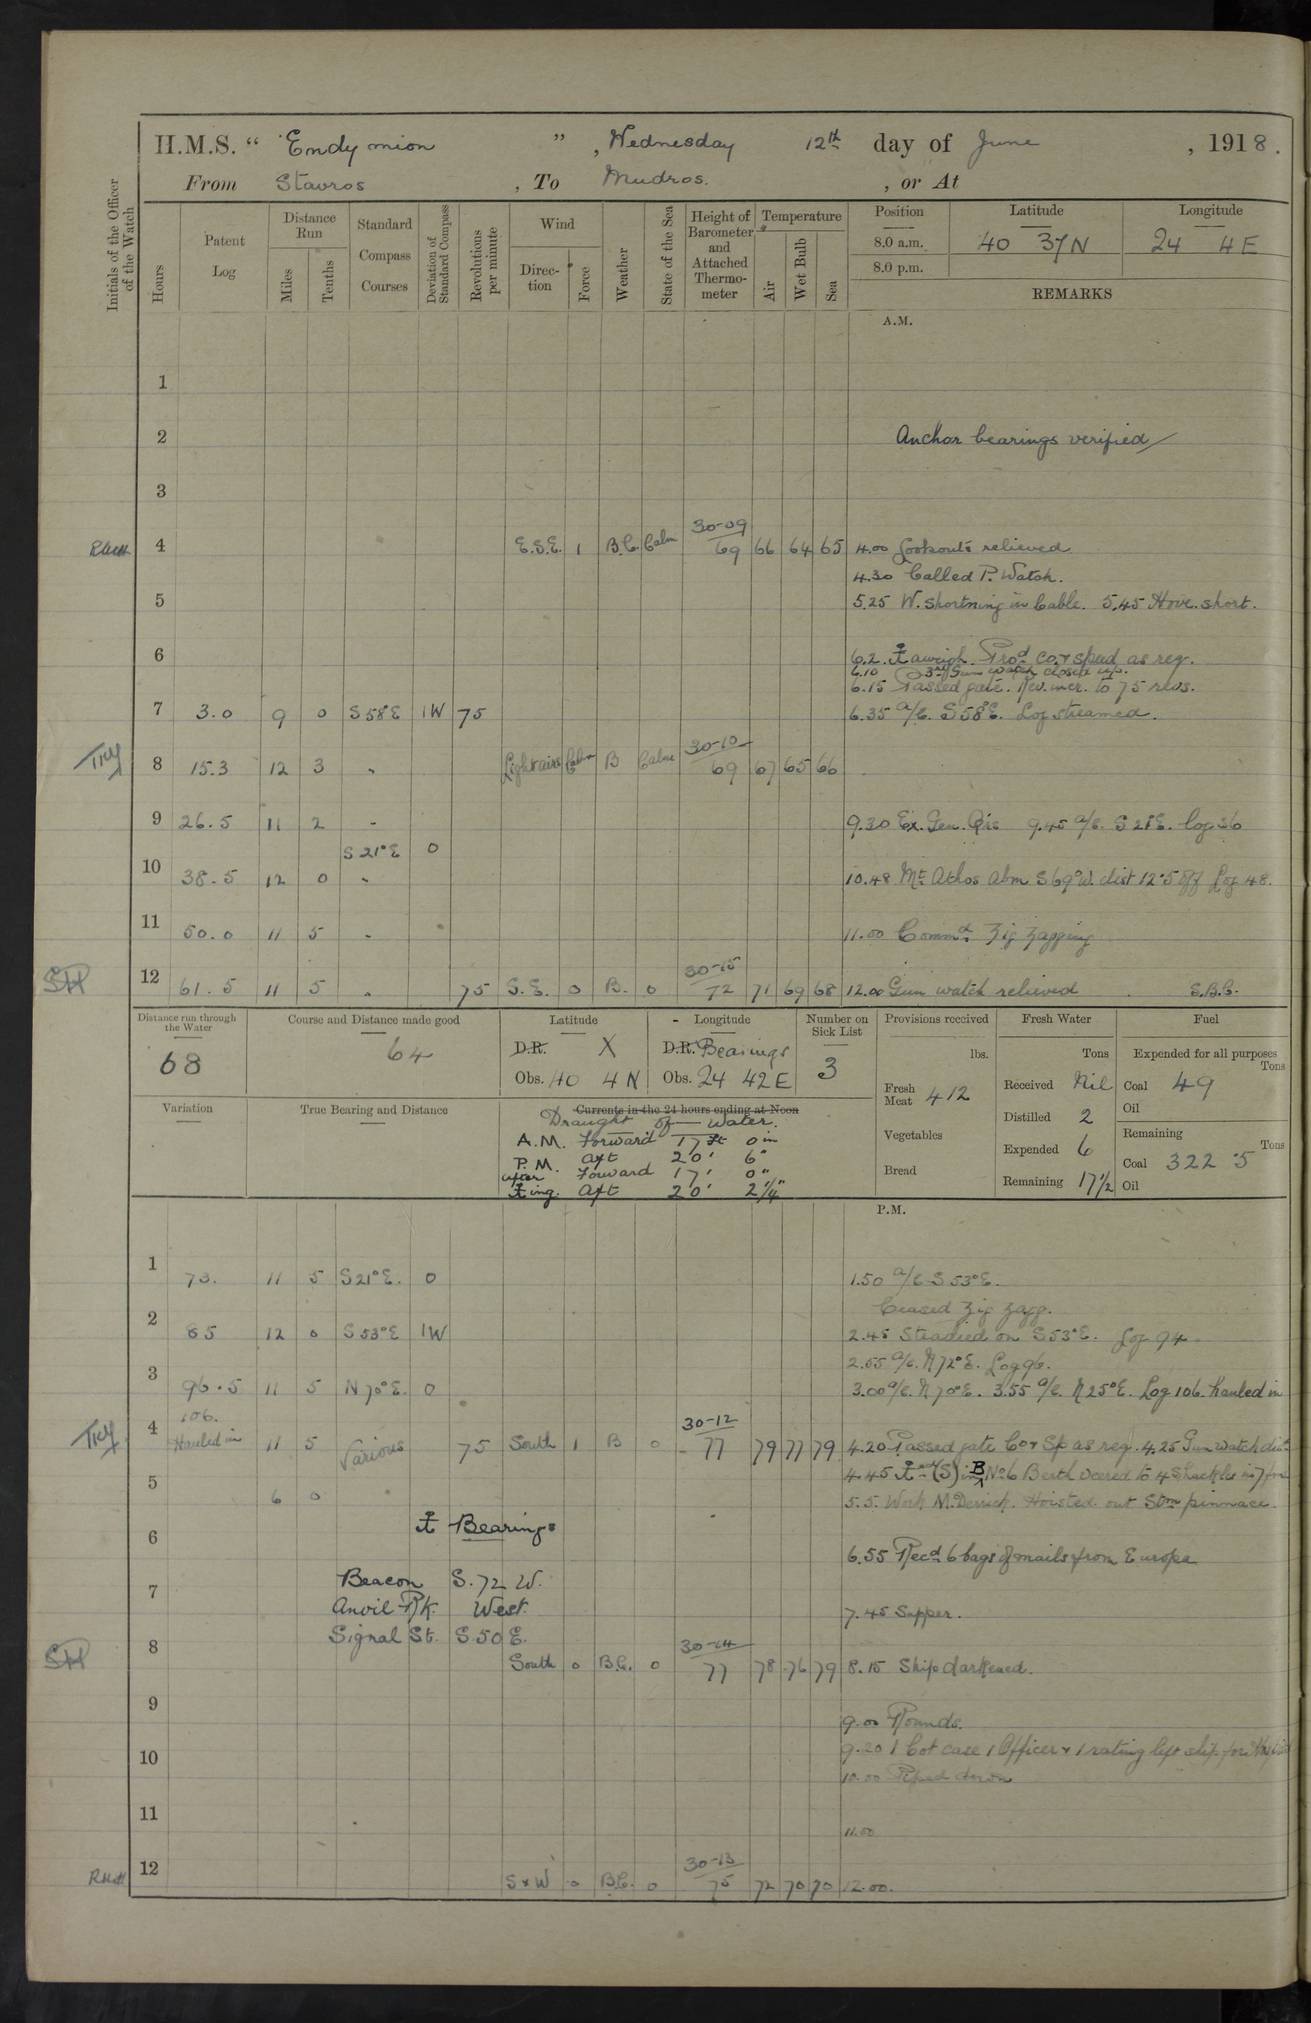 H.M.S. " Endymion ", Wednesday 12th day of June, 1918.
From Stavros, To Mudros. , or At
Initials of the Officer of the Watch
Hours
Patent Log
Distance Run
Miles
Tenths
Standard Compass Courses
Deviation of Standard Compass
Revolutions per minute
Wind
Direction
Force
Weather
State of the Sea
Height of Barometer and Attached Thermometer
Temperature
Air
Wet Bulb
Sea
Position
Latitude
Longitude
8.0 a.m. 40 37 N 24 4 E
8.0 p.m.
REMARKS
A.M.
1
2 Anchor bearings verified
3
30-09
4 E.S.E. 1 B.C. Calm 69 66 64 65 4.00 Lookouts relieved
4.30 Called P. Watch.
5 5.25 W. Shortning in Cable. 5.45 Hove short.
6 6.2. aweigh. Pro'd Co. & speed as req.
6.10 3rd Gun watch closed up.
6.15 Passed gate. Rev. incr. to 75 revs.
7 3.0 9 0 S 58° E 1W 75 6.35 a/c. S 58° E. Log streamed.
30-10
8 15.3 12 3 " Light airs Calm B Calm 69 67 65 66
9 26.5 11 2 " 9.30 Ex. Gen. Qrs 9.45 a/c. S 21° E. Log 36
S 21° E 0
10 38.5 12 0 " 10.48 Mt Athos abm S 69° W. dist 12.5 off Log 48.
11 50.0 11 5 " 11.00 Commd. Zig Zagging
30-15
12 61.5 11 5 " 75 S.E. 0 B. 0 72 71 69 68 12.00 Gun watch relieved S.B.G.
Distance run through the Water
68
Course and Distance made good
64
Latitude
D.R. X
Obs. 40 4 N
Longitude
D.R. Bearings
Obs. 24 42 E
Number on Sick List
3
Provisions received
lbs.
Fresh Meat 412
Vegetables
Bread
Fresh Water
Tons
Received Nil
Distilled 2
Expended 6
Remaining 17½
Fuel
Expended for all purposes
Tons
Coal 49
Oil
Remaining
Tons
Coal 322.5
Oil
Variation
True Bearing and Distance
Currents in the 24 hours ending at Noon
Draught of water.
A.M. Forward 17 ft 0 in
P.M. aft 20' 6"
after Forward 17' 0"
ing. Aft 20' 2¼"
P.M.
1 73. 11 5 S 21° E. 0 1.50 a/c S 53° E.
Ceased Zig Zagg.
2 85 12 0 S 53° E 1W 2.45 Steadied on S 53° E. Log 94.
2.55 a/c. N 72° E. Log 96.
3 96.5 11 5 N 70° E. 0 3.00 a/c. N 70° E. 3.55 a/c. N 25° E. Log 106. hauled in
106. 30-12
4 Hauled in 11 5 Various 75 South 1 B 0 77 79 77 79 4.20 Passed gate Co & Sp as req. 4.25 Gun watch
4.45 (S) in B No 6 Berth veered to 4 Shackles
5 6 0 5.5. Work M. Derrick. Hoisted out Stm pinnace.
Bearings
6 6.55 Recd. 6 bags of mails from Europa
Beacon S. 72 W.
7 Anvil Rk. West. 7.45 Supper.
Signal St. S. 50 E.
30-14
8 South 0 B.C. 0 77 78 76 79 8.15 Ship darkened.
9 9.00 Rounds.
9.20 1 Cot case 1 Officer & 1 rating left ship for Hospital
10 10.00 Piped down
11 11.00
30-13
12 S x W 0 B.C. 0 75 72 70 70 12.00.